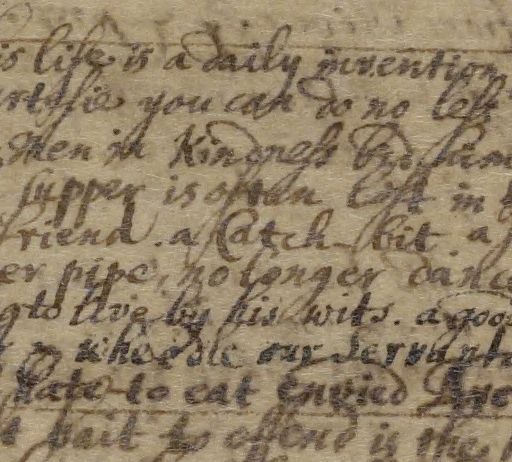 is life is a daily invention
you can do no less
Men in kindness bid
supper is often lost in
friend. a Catch-bit a
er pipe, no longer danc
g to live by his wits. a goo
wheedle our servants
hate to eat envied
t bait to offend is the